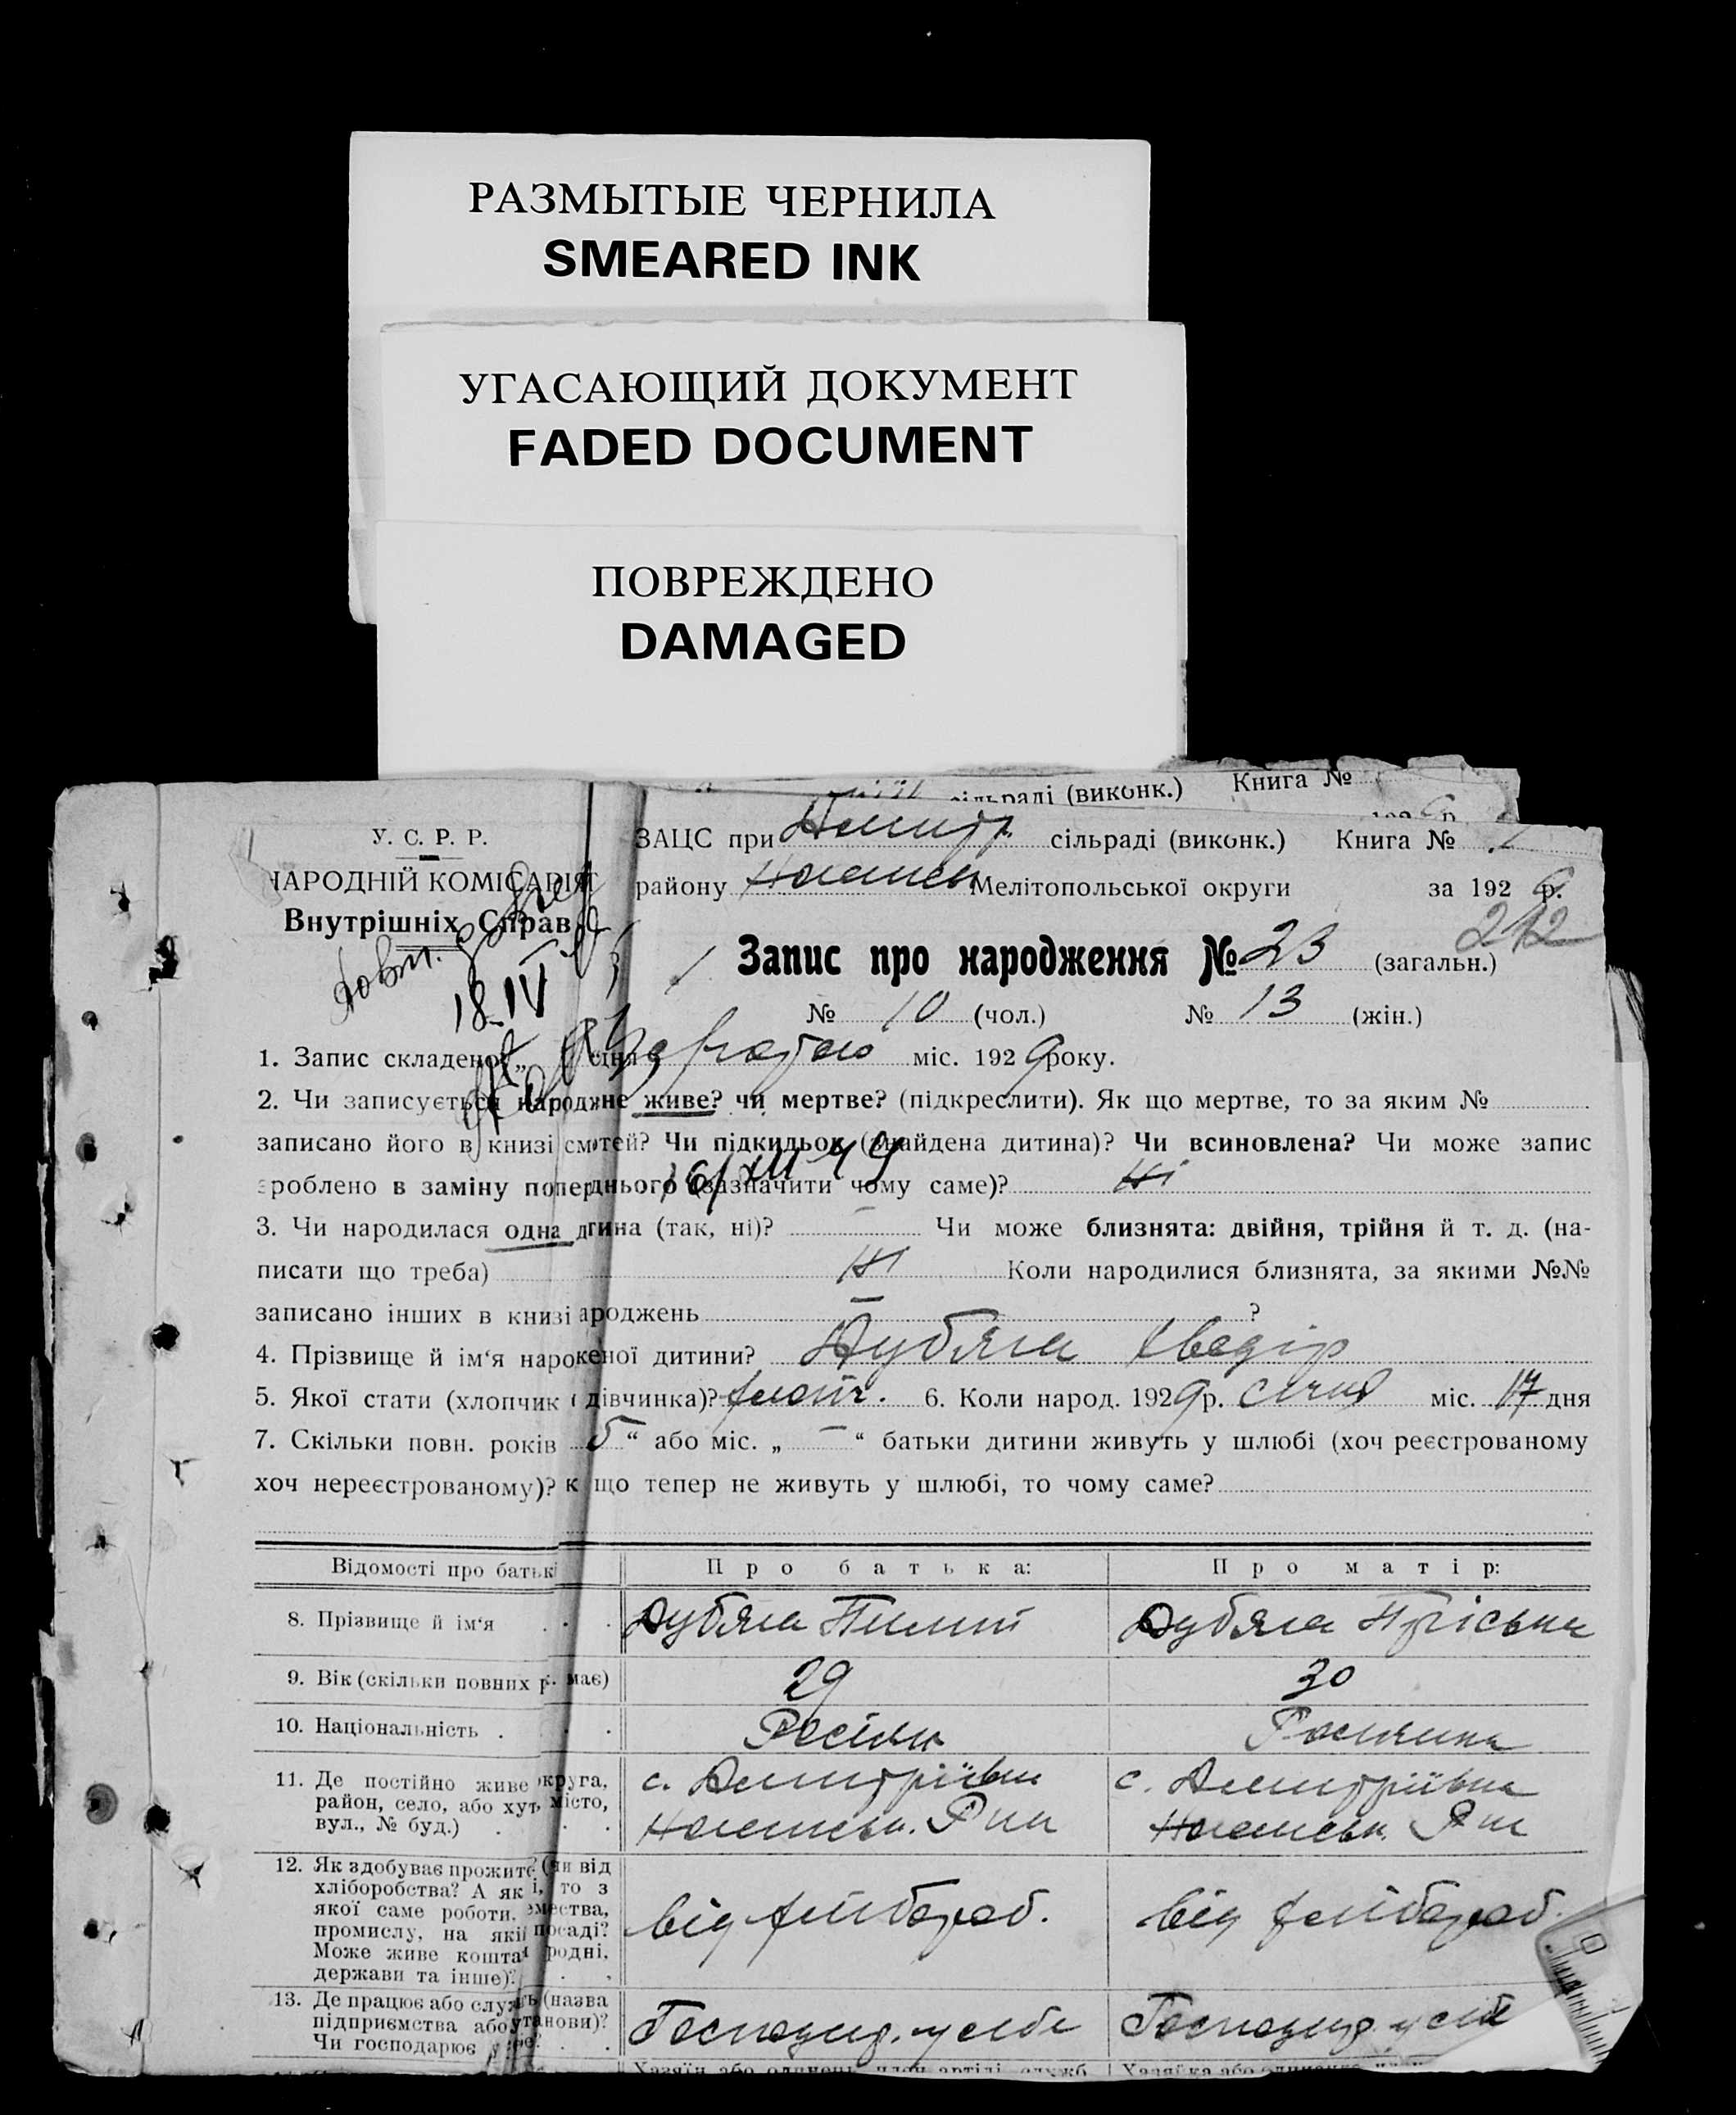 РАЗМЫТЫЕ ЧЕРНИЛА
SMEARED INK
УГАСАЮЩИЙ ДОКУМЕНТ
FADED DOCUMENT
ПОВРЕЖДЕНО
DAMAGED
сільраді (виконк.) Книга №
У. С. Р. Р.
НАРОДНІЙ КОМІСАРІЯТ
Внутрішніх Справ
18.IV
ЗАЦС при Дмитр. сільраді (виконк.) Книга № 1
району Мелітопольської округи за 1929 р.
212
Запис про народження № 23 (загальн.)
№ 10 (чол.) № 13 (жін.)
1. Запис складено „ міс. 1929 року.
2. Чи записується народжене живе? чи мертве? (підкреслити). Як що мертве, то за яким №
записано його в книзі смертей? Чи підкидьок (знайдена дитина)? Чи всиновлена? Чи може запис
зроблено в заміну попереднього (зазначити чому саме)? Ні
3. Чи народилася одна дитина (так, ні)? — Чи може близнята: двійня, трійня й т. д. (на-
писати що треба) Ні Коли народилися близнята, за якими №№
записано інших в книзі народжень — ?
4. Прізвище й ім'я народженої дитини? Дубяга Хведір
5. Якої стати (хлопчик дівчинка)? хлопч. 6. Коли народ. 1929 р. січня міс. 17 дня
7. Скільки повн. років 5 “ або міс. „ — “ батьки дитини живуть у шлюбі (хоч реєстрованому
хоч нереєстрованому)? Як що тепер не живуть у шлюбі, то чому саме?
Відомості про батьків Про батька: Про матір:
8. Прізвище й ім'я Дубяга Пилип Дубяга Пріська
9. Вік (скільки повних р. має) 29 30
10. Національність Росіян Росіянка
11. Де постійно живе округа,
район, село, або хут, місто,
вул., № буд.)
с. Дмитріївка с. Дмитріївка
12. Як здобуває прожиток? (чи від
хліборобства? А як ні, то з
якої саме роботи, ремества,
промислу, на якій посаді?
Може живе коштами родні,
держави та інше)?
від хлібороб. від хлібороб.
13. Де працює або служить (назва
підприємства або установи)?
Чи господарює у себе?
Господар. у себе Господар. у себе
Хазяїн або одинець, член артілі, служб. Хазяйка або одиначка